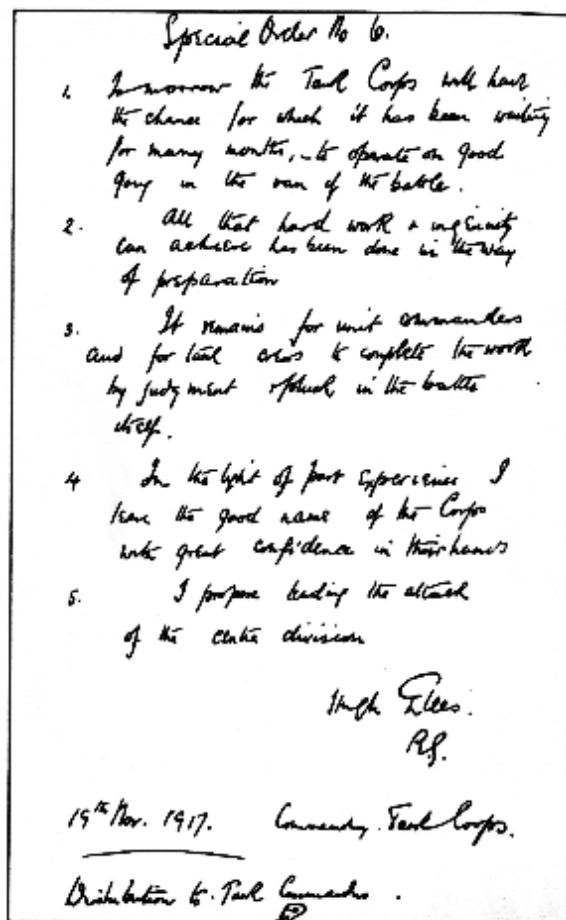 Special Order No 6.
1. Tomorrow the Tank Corps will have
the chance for which it has been waiting
for many months, - to operate on good
going in the van of the battle.
2. All that hard work & ingenuity
can achieve has been done in the way
of preparation
3. It remains for unit commanders
and for tank crews to complete the work
by judgment & pluck in the battle
itself.
4 In the light of past experience I
leave the good name of the Corps
with great confidence in their hands
5. I propose leading the attack
of the centre division
Hugh Elles.
B.G.
19th Nov. 1917. Commanding. Tank Corps.
Distribution to. Tank Commanders.